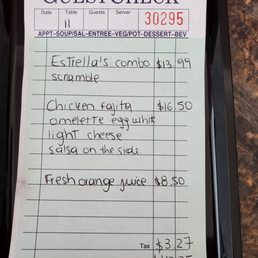 GUEST CHECK
Date Table Guests Server
11 30295
APPT-SOUP/SAL-ENTREE-VEG/POT-DESSERT-BEV
Estrella's combo $13.99
scramble
Chicken fajita $16.50
omelette egg white
light cheese
salsa on the side
Fresh orange juice $8.50
Tax $3.27